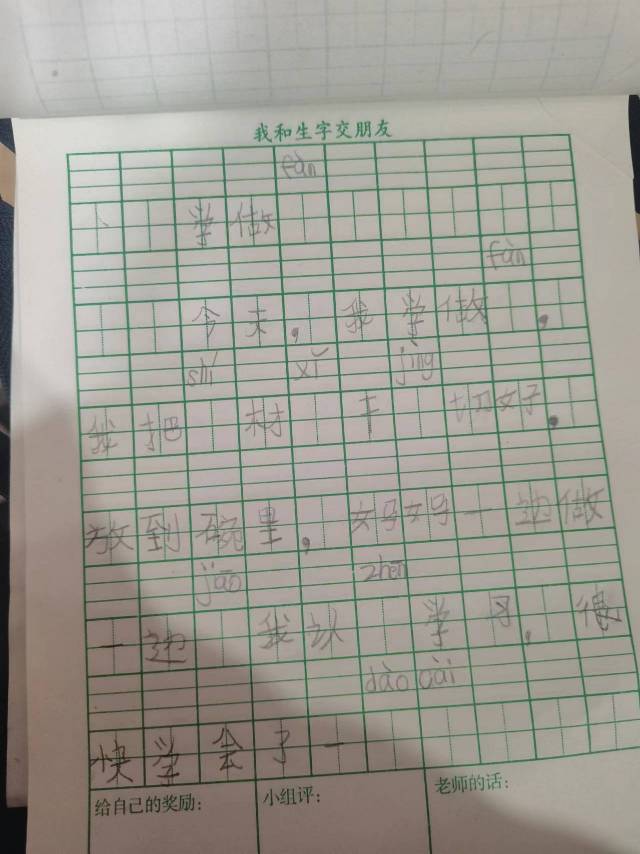 我和生字交朋友
fàn
学做
fàn
今天，我学做，
shí xǐ jìng
我把材干切好，
放到碗里，妈妈一边做
jiāo zhēn
一边我认学习，很
dào cài
快学会了一
给自己的奖励： 小组评： 老师的话：